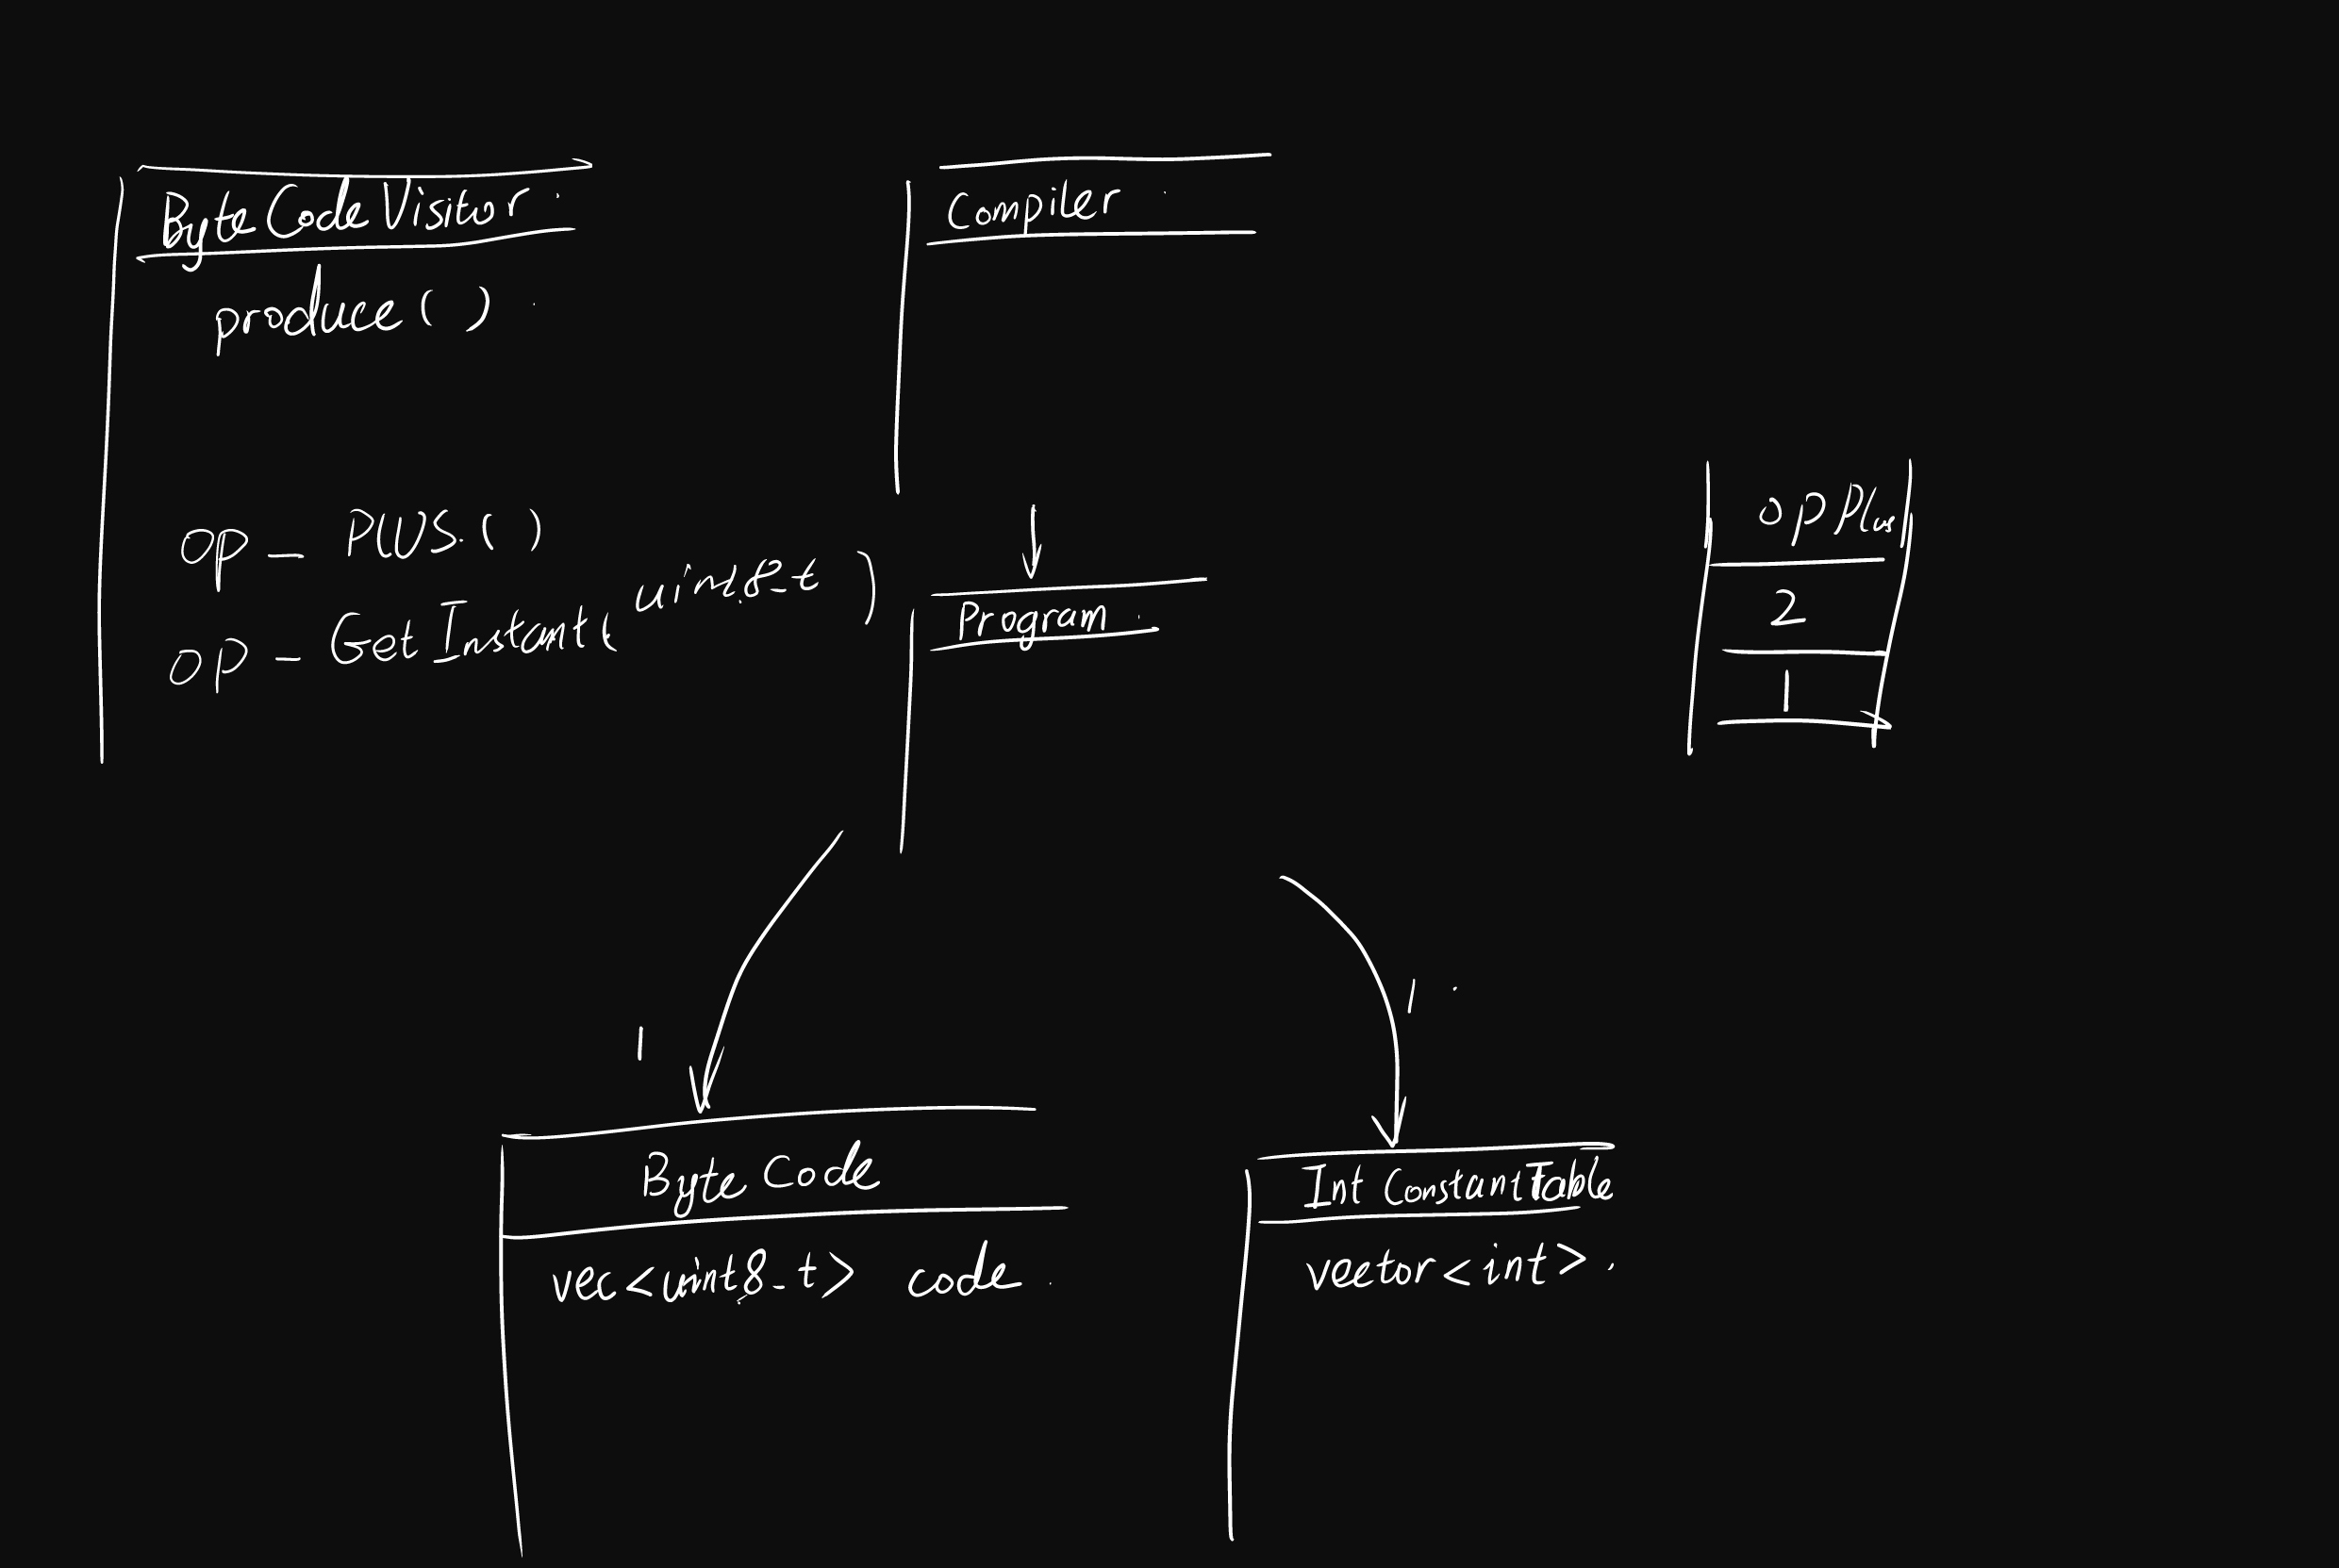 ByteCodeVisitor
produce()
op_PLUS.()
op_GetInstant(uint8_t)
Compiler
Program
opPlus
2
1
1
1
Byte Code
vec<uint8_t> code
Int ConstantTable
vector<int>